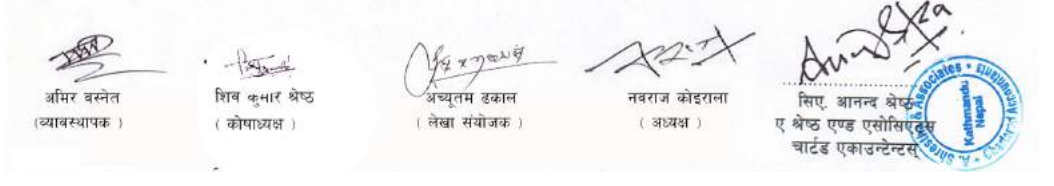 अमिर बस्नेत
(व्यावस्थापक )
शिव कुमार श्रेष्ठ
( कोषाध्यक्ष )
अच्यूतम ढकाल
( लेखा संयोजक )
नवराज कोइराला
( अध्यक्ष )
सिए. आनन्द श्रेष्ठ
ए श्रेष्ठ एण्ड एसोसिएट्स
चार्टड एकाउन्टेन्टस्
A. Shrestha & Associates * Chartered Accountants *
Kathmandu
Nepal